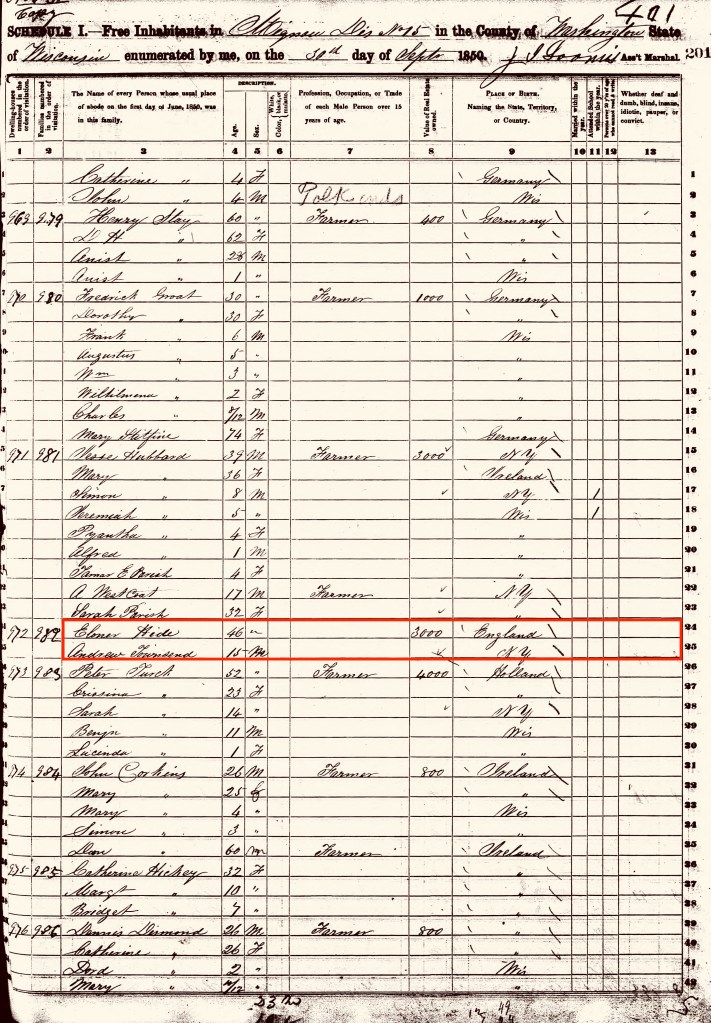 Copy
401
SCHEDULE I.—Free Inhabitants in Dis No 15 in the County of Washington State
of Wisconsin enumerated by me, on the 30th day of Septr 1850. J. I. Loomis Ass't Marshal. 201
Dwelling-houses numbered in the order of visitation. Families numbered in the order of visitation. The Name of every Person whose usual place of abode on the first day of June, 1850, was in this family. DESCRIPTION. Age. Sex. Color, White, black, or mulatto. Profession, Occupation, or Trade of each Male Person over 15 years of age. Value of Real Estate owned. PLACE OF BIRTH. Naming the State, Territory, or Country. Married within the year. Attended School within the year. Persons over 20 y'rs of age who cannot read & write. Whether deaf and dumb, blind, insane, idiotic, pauper, or convict.
1 2 3 4 5 6 7 8 9 10 11 12 13
1 Catherine " 4 F Germany 1
2 John " 4 M Wis 2
3 969 979 Henry Stay 60 " Farmer 400 Germany 3
4 D H " 62 F " 4
5 Anist " 28 M " 5
6 Anist " 1 " Wis 6
7 970 980 Fredrick Groat 30 " Farmer 1000 Germany 7
8 Dorothy " 30 F " 8
9 Frank " 6 M Wis 9
10 Augustus " 5 " " 10
11 Wm " 3 " " 11
12 Wilhilmena " 2 F " 12
13 Charles " 8/12 M " 13
14 Mary Stitfine 74 F Germany 14
15 971 981 Jesse Hubbard 39 M Farmer 3000 NY 15
16 Mary " 36 F Ireland 16
17 Simon " 8 M NY 1 17
18 Jeremiah " 5 " Wis 1 18
19 Pyantha " 4 F " 19
20 Alfred " 1 M " 20
21 Tamar E Parish 4 F " 21
22 A West Coat 17 M Farmer NY 22
23 Sarah Parish 32 F " 23
24 972 982 Ebner Hide 46 " 3000 England 24
25 Andrew Townsend 15 M NY 25
26 973 983 Peter Turck 52 " Farmer 4000 Holland 26
27 Crissina " 23 F " 27
28 Sarah " 14 " NY 28
29 Benjn " 11 M Wis 29
30 Lucinda " 1 F " 30
31 974 984 John Corkins 26 M Farmer 800 Ireland 31
32 Mary " 25 f " 32
33 Mary " 4 " Wis 33
34 Simon " 3 " " 34
35 Dan " 60 m Farmer Ireland 35
36 975 985 Catherine Hickey 32 F " 36
37 Margt " 10 " " 37
38 Bridget " 7 " " 38
39 976 986 Dennis Dimond 26 M Farmer 800 " 39
40 Catherine " 26 F " 40
41 " 2 " Wis 41
42 Mary " " " 42